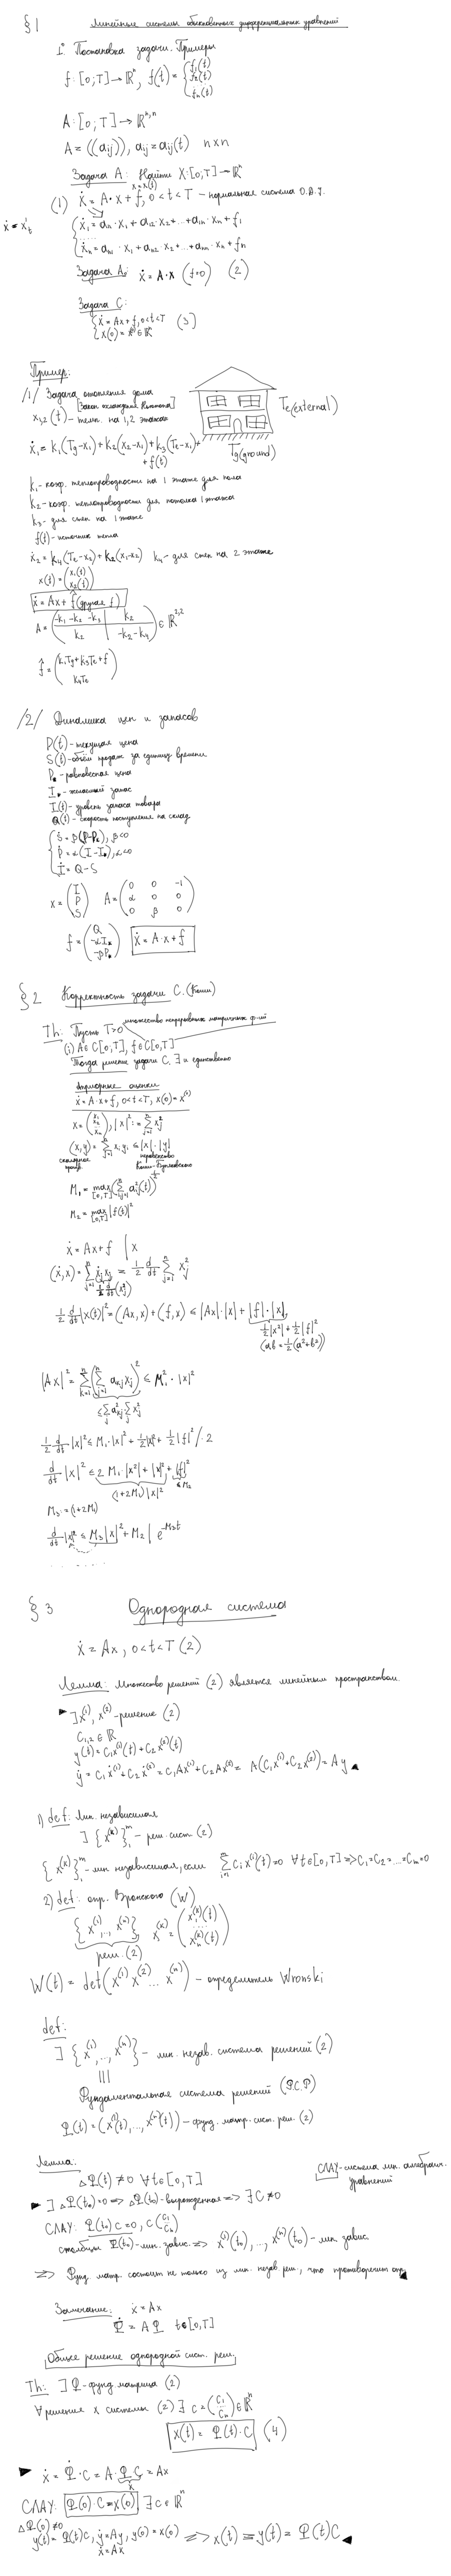 §1 Линейные системы обыкновенных дифференциальных уравнений
1° Постановка задачи. Примеры
f: [0;T] → ℝⁿ, f(t) = (f₁(t) f₂(t) ... fₙ(t))
A: [0;T] → ℝⁿ,ⁿ
A = ((aij)), aij = aij(t) n×n
Задача A: Найти X:[0;T]→ℝⁿ
x=x(t)
(1) ẋ = A·x + f, 0<t<T – нормальная система О.Д.У.
ẋ = x't
{ẋ₁ = a₁₁·x₁ + a₁₂·x₂+...+a₁ₙ·xₙ + f₁
....
ẋₙ = aₙ₁·x₁ + aₙ₂·x₂+...+aₙₙ·xₙ + fₙ
Задача A₀: ẋ = A·x (f=0) (2)
Задача C:
{ẋ = Ax+f, 0<t<T
x(0) = x⁰∈ℝⁿ (3)
Пример:
/1/ Задача отопления дома
[Закон охлаждения Ньютона]
x₁,₂(t) – темп. на 1,2 этажах
Te(external)
Tg(ground)
ẋ₁ = k₁(Tg-x₁) + k₂(x₂-x₁) + k₃(Te-x₁) +
+ f(t)
k₁ – коэф. теплопроводности на 1 этаже для пола
k₂ – коэф. теплопроводности для потолка 1 этажа
k₃ – для стен на 1 этаже
f(t) – источник тепла
ẋ₂ = k₄(Te-x₂) + k₂(x₁-x₂) k₄ – для стен на 2 этаже
x(t) = (x₁(t) x₂(t))
ẋ = Ax + f̂ (другая f)
A = (-k₁-k₂-k₃ | k₂
k₂ | -k₂-k₄) ∈ ℝ²,²
f̂ = (k₁Tg+k₃Te+f
k₄Te)
/2/ Динамика цен и запасов
P(t) – текущая цена
S(t) – объём продаж за единицу времени
P* – равновесная цена
I* – желаемый запас
I(t) – уровень запаса товара
Q(t) – скорость поступления на склад
{Ṡ = β(P-P*), β<0
Ṗ = α(I-I*), α<0
İ = Q-S
x = (I P S) A = (0 0 -1
α 0 0
0 β 0)
f = (Q -αI* -βP*) ẋ = A·x + f
§2 Корректность задачи C. (Коши)
Th: Пусть T>0 множество непрерывных матричных ф-ий
(i) A∈C[0,T], f∈C[0,T]
Тогда решение задачи C. ∃ и единственно
Априорные оценки
ẋ = A·x+f, 0<t<T, x(0)=x⁽⁰⁾
x = (x₁ x₂ ... xₙ), |x|² := Σⁿⱼ₌₁ xⱼ²
(x,y) = Σⁿⱼ₌₁ xⱼyⱼ ≤ |x|·|y|
скалярное произв. неравенство Коши-Буняковского
M₁ = max[0,T] (Σⁿᵢⱼ₌₁ a²ij(t))^½
M₂ = max[0,T] |f(t)|²
ẋ = Ax+f | x
(ẋ,x) = Σⁿⱼ₌₁ ẋⱼxⱼ = ½ d/dt Σⁿⱼ₌₁ xⱼ²
½ d/dt (xⱼ²)
½ d/dt |x(t)|² = (Ax,x) + (f,x) ≤ |Ax|·|x| + |f|·|x|
½|x²| + ½|f|²
(ab = ½(a²+b²))
|Ax|² = Σⁿₖ₌₁ (Σⁿⱼ₌₁ aₖⱼxⱼ)² ≤ M₁²·|x|²
≤ Σⱼ a²ₖⱼ Σⱼ xⱼ²
½ d/dt |x|² ≤ M₁·|x|² + ½|x|² + ½|f|² /·2
d/dt |x|² ≤ 2M₁·|x²| + |x|² + |f|²
(1+2M₁)|x|² ≤M₂
M₃ := (1+2M₁)
d/dt |x|² ≤ M₃|x|² + M₂ | e^-M₃t
§3 Однородная система
ẋ = Ax, 0<t<T (2)
Лемма: Множество решений (2) является линейным пространством.
► ∃x⁽¹⁾, x⁽²⁾ – решение (2)
C₁,₂ ∈ ℝ
y(t) = C₁x⁽¹⁾(t) + C₂x⁽²⁾(t)
ẏ = C₁ẋ⁽¹⁾ + C₂ẋ⁽²⁾ = C₁Ax⁽¹⁾ + C₂Ax⁽²⁾ = A(C₁x⁽¹⁾+C₂x⁽²⁾) = Ay ◄
1) def: Лин. независимая
∃ {x⁽ᵏ⁾}₁ᵐ – реш. сист. (2)
{x⁽ᵏ⁾}₁ᵐ – лин. независимая, если Σᵐᵢ₌₁ Cᵢx⁽ⁱ⁾(t)=0 ∀t∈[0,T] => C₁=C₂=...=Cₘ=0
2) def: опр. Вронского (W)
{x⁽¹⁾,...,x⁽ⁿ⁾} x⁽ᵏ⁾ = (x₁⁽ᵏ⁾(t) .... xₙ⁽ᵏ⁾(t))
реш. (2)
W(t) = det(x⁽¹⁾ x⁽²⁾ ... x⁽ⁿ⁾) – определитель Wronski
def:
∃ {x⁽¹⁾,...,x⁽ⁿ⁾} – лин. незав. система решений (2)
|||
Фундаментальная система решений (Ф.С.Р)
Φ(t) = (x⁽¹⁾(t),...,x⁽ⁿ⁾(t)) – фунд. матр. сист. реш. (2)
Лемма:
ΔΦ(t) ≠ 0 ∀t∈[0,T]
СЛАУ-система лин. алгебраич. уравнений
► ∃ ΔΦ(t₀)=0 => ΔΦ(t₀)-вырожденная => ∃C≠0
СЛАУ: Φ(t₀)C=0, C(C₁ ... Cₙ)
столбцы Φ(t₀)-лин. завис. => x⁽¹⁾(t₀),...,x⁽ⁿ⁾(t₀) – лин. завис.
=> Фунд. матр. состоит не только из лин. незав реш., что противоречит опр ◄
Замечание: ẋ = Ax
Φ̇ = AΦ t∈[0,T]
Общее решение однородной сист. реш.
Th: ∃Φ-фунд матрица (2)
∀решения x системы (2) ∃ C = (C₁ ... Cₙ) ∈ ℝⁿ
x(t) = Φ(t)·C (4)
► ẋ = Φ̇·C = A·Φ·C = Ax
x
СЛАУ: Φ(0)·C = x(0) ∃ C∈ℝⁿ
ΔΦ(0)≠0
y(t) = Φ(t)C, ẏ=Ay, y(0)=x(0) => x(t) ≡ y(t) = Φ(t)C ◄
ẋ=Ax